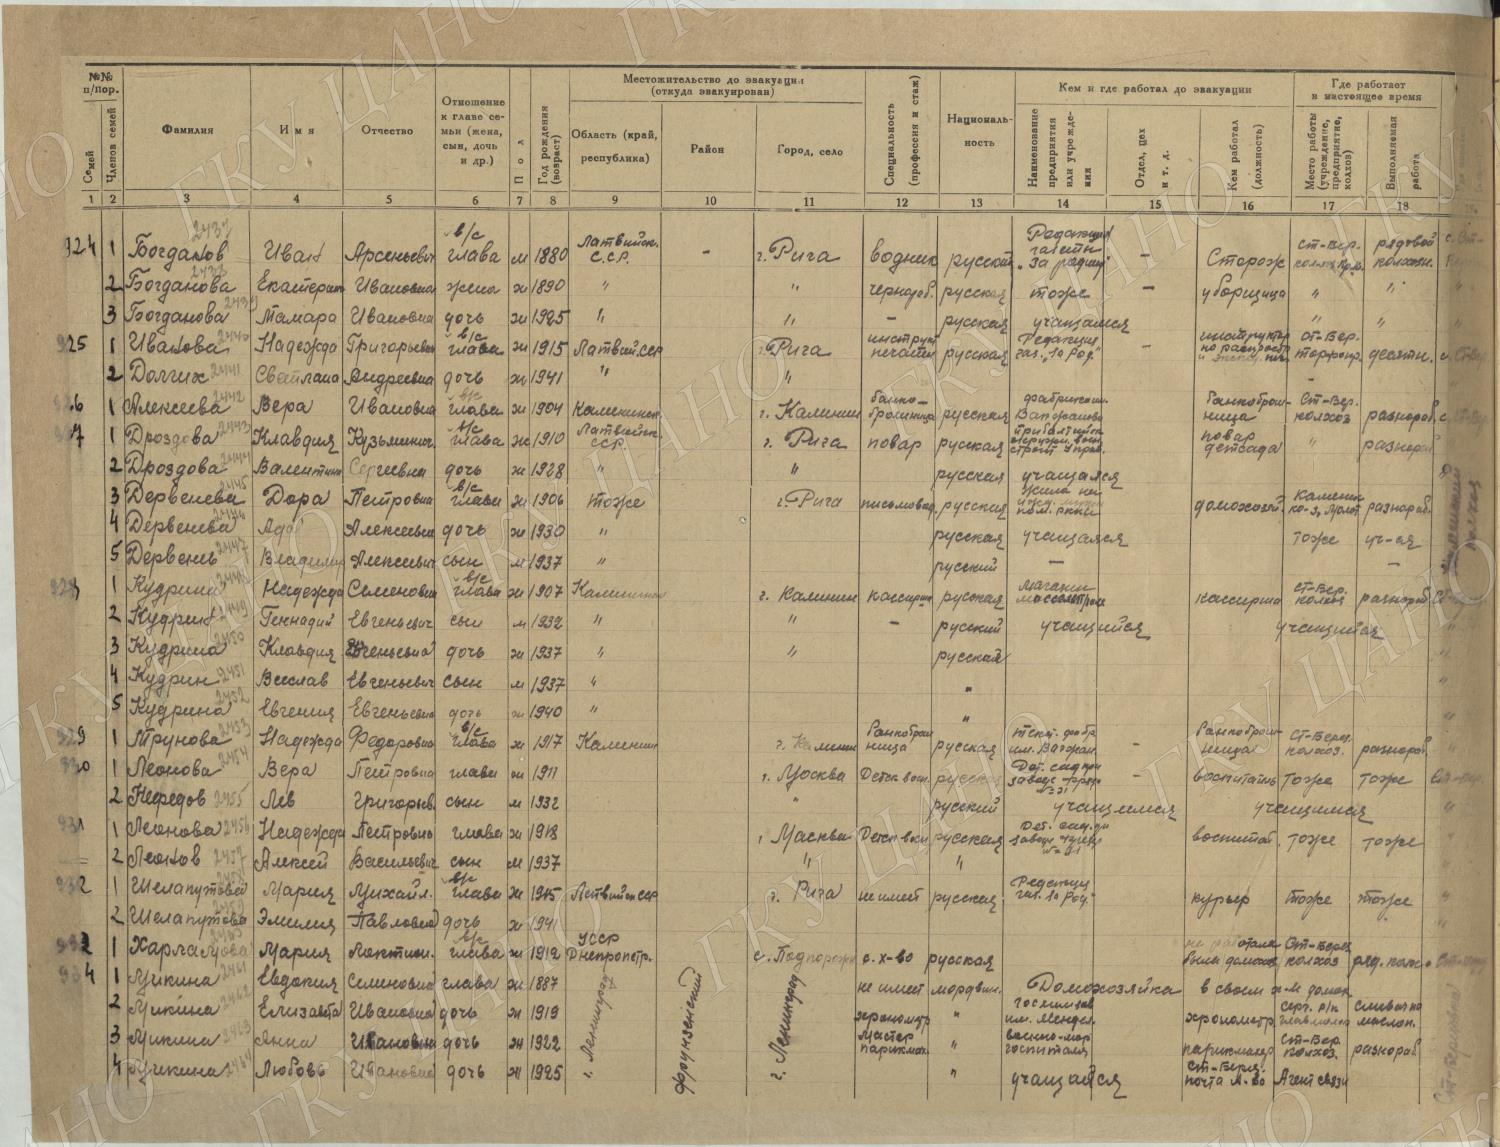 №№ п/пор.
Семей
Членов семей
Фамилия
Имя
Отчество
Отношение к главе семьи (жена, сын, дочь и др.)
Пол
Год рождения (возраст)
Местожительство до эвакуации (откуда эвакуирован)
Область (край, республика)
Район
Город, село
Специальность (профессия и стаж)
Националь-ность
Кем и где работал до эвакуации
Наименование предприятия или учрежде-ния
Отдел, цех и т. д.
Кем работал (должность)
Где работает в настоящее время
Место работы (учреждение, предприятие, колхоз)
Выполняемая работа
1 2 3 4 5 6 7 8 9 10 11 12 13 14 15 16 17 18
924 1 Богданов 2437 Иван Арсеньевич в/с глава м 1880 Латвийск. С.С.Р. - г. Рига водник русский Редакция газеты "За родину" - Сторож ст-Бер. колхоз рядовой колхозн.
2 Богданова 2438 Екатерина Ивановна жена ж 1890 " " чернораб. русская тоже - уборщица " "
3 Богданова 2439 Тамара Ивановна дочь ж 1925 " " - русская учащаяся " "
925 1 Иванова 2440 Надежда Григорьевна в/с глава ж 1915 Латвий.сср г. Рига инструкт печати русская Редакция газ. "За Род." инструктор ст-Бер. десятн.
2 Долгих 2441 Светлана Андреевна дочь ж 1941 " "
926 1 Алексеева 2442 Вера Ивановна в/с глава ж 1904 Калининск. г. Калинин банко-брошница русская фабрика им. Вагжанова банкоброш-ница Ст-Бер. колхоз разнораб.
927 1 Дроздова 2443 Клавдия Кузьминич. в/с глава ж 1910 Латвийск. ССР. г. Рига повар русская повар детсада " разнораб
2 Дроздова 2444 Валентина Сергеевна дочь ж 1928 " " русская учащаяся
3 Дервенева 2445 Дора Петровна в/с глава ж 1906 тоже г. Рига русская домохозяй. разнораб.
4 Дервенева 2446 Ада Алексеевна дочь ж 1930 " русская учащаяся тоже уч-ся
5 Дервенев 2447 Владимир Алексеевич сын м 1937 " русский - -
928 1 Кудрина 2448 Надежда Семеновна в/с глава ж 1907 Калининск г. Калинин кассирша русская магазин кассирша ст-Бер. колхоз разнораб
2 Кудрин 2449 Геннадий Евгеньевич сын м 1932 " " - русский учащийся учащийся "
3 Кудрина 2450 Клавдия Евгеньевна дочь ж 1937 " " русская "
4 Кудрин 2451 Веслав Евгеньевич сын м 1937 " " "
5 Кудрина 2452 Евгения Евгеньевна дочь ж 1940 " " "
929 1 Трунова 2453 Надежда Федоровна в/с глава ж 1917 Калинин г. Калинин банкоброш ница русская текст. фабр им. Вагжан. - банкоброш-ница Ст-Берез. колхоз. разнораб "
930 1 Леонова 2454 Вера Петровна глава ж 1911 г. Москва Детск. восп. русская Дет. сад при заводе - воспитатель тоже тоже
2 Нефедов 2455 Лев Григорьев. сын м 1932 " русский учащимся учащимся "
931 1 Леонова 2456 Надежда Петровна глава ж 1918 г Москва Детск восп русская Дет. сад. при заводе воспитат. тоже тоже "
2 Леонов 2457 Алексей Васильевич сын м 1937 " "
932 1 Шелапутова 2458 Мария Михайл. в/с глава ж 1915 Латвийск сср г. Рига не имеет русская Редакция газ. "За Род." курьер тоже тоже "
2 Шелапутова 2459 Эмилия Павловна дочь ж 1941 "
933 1 Харламова 2460 Мария Локтион. в/с глава ж 1912 УССР Днепропетр. с. Подпорожн с. х-во русская не работала была домохоз Ст-Берез колхоз ряд. колх.
934 1 Мукина 2461 Евдокия Семеновна глава ж 1887 г. Ленинград Фрунзенский г. Ленинград не имеет мордвин. Домохозяйка в своем х-м домох
2 Мукина 2462 Елизавета Ивановна дочь ж 1919 хронометр " им. Менд. хронометр.
3 Мукина 2463 Анна Ивановна дочь ж 1922 мастер парикмах " военно-мор госпиталя парикмахер Ст-Бер. колхоз. разнораб
4 Мукина 2464 Любовь Ивановна дочь ж 1925 " учащаяся Ст-Берез. почта Агент связи
ГКУ ЦАНО